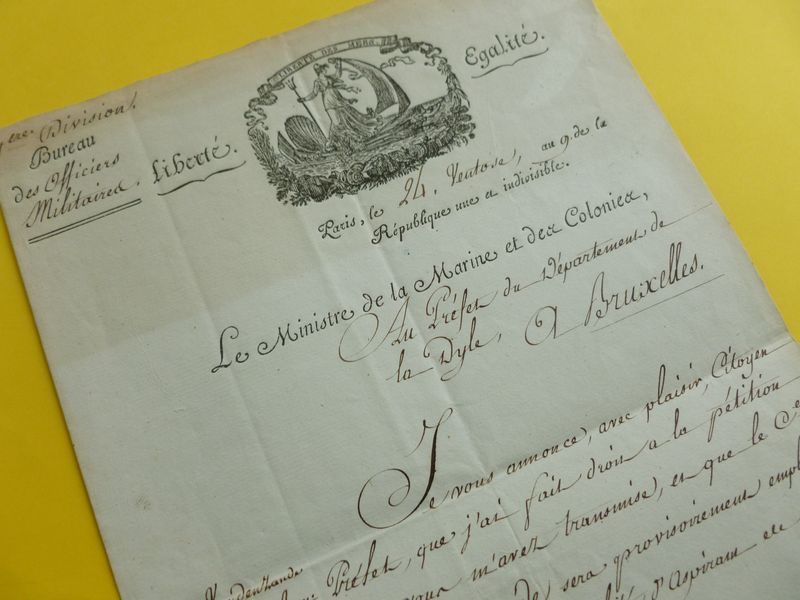 LIBERTÉ DES MERS
Liberté. Egalité.
ere Division.
Bureau
des Officiers
Militaires.
Paris, le 24. Ventose, an 9. de la
République une et indivisible.
Le Ministre de la Marine et des Colonies,
Au Préfet du Département de
la Dyle, A Bruxelles.
Je vous annonce, avec plaisir, Citoyen
Préfet, que j'ai fait droit a la pétition
vous m'avez transmise, et que le C.en
Vandenzande
de sera provisoirement empl
d'Aspirant de